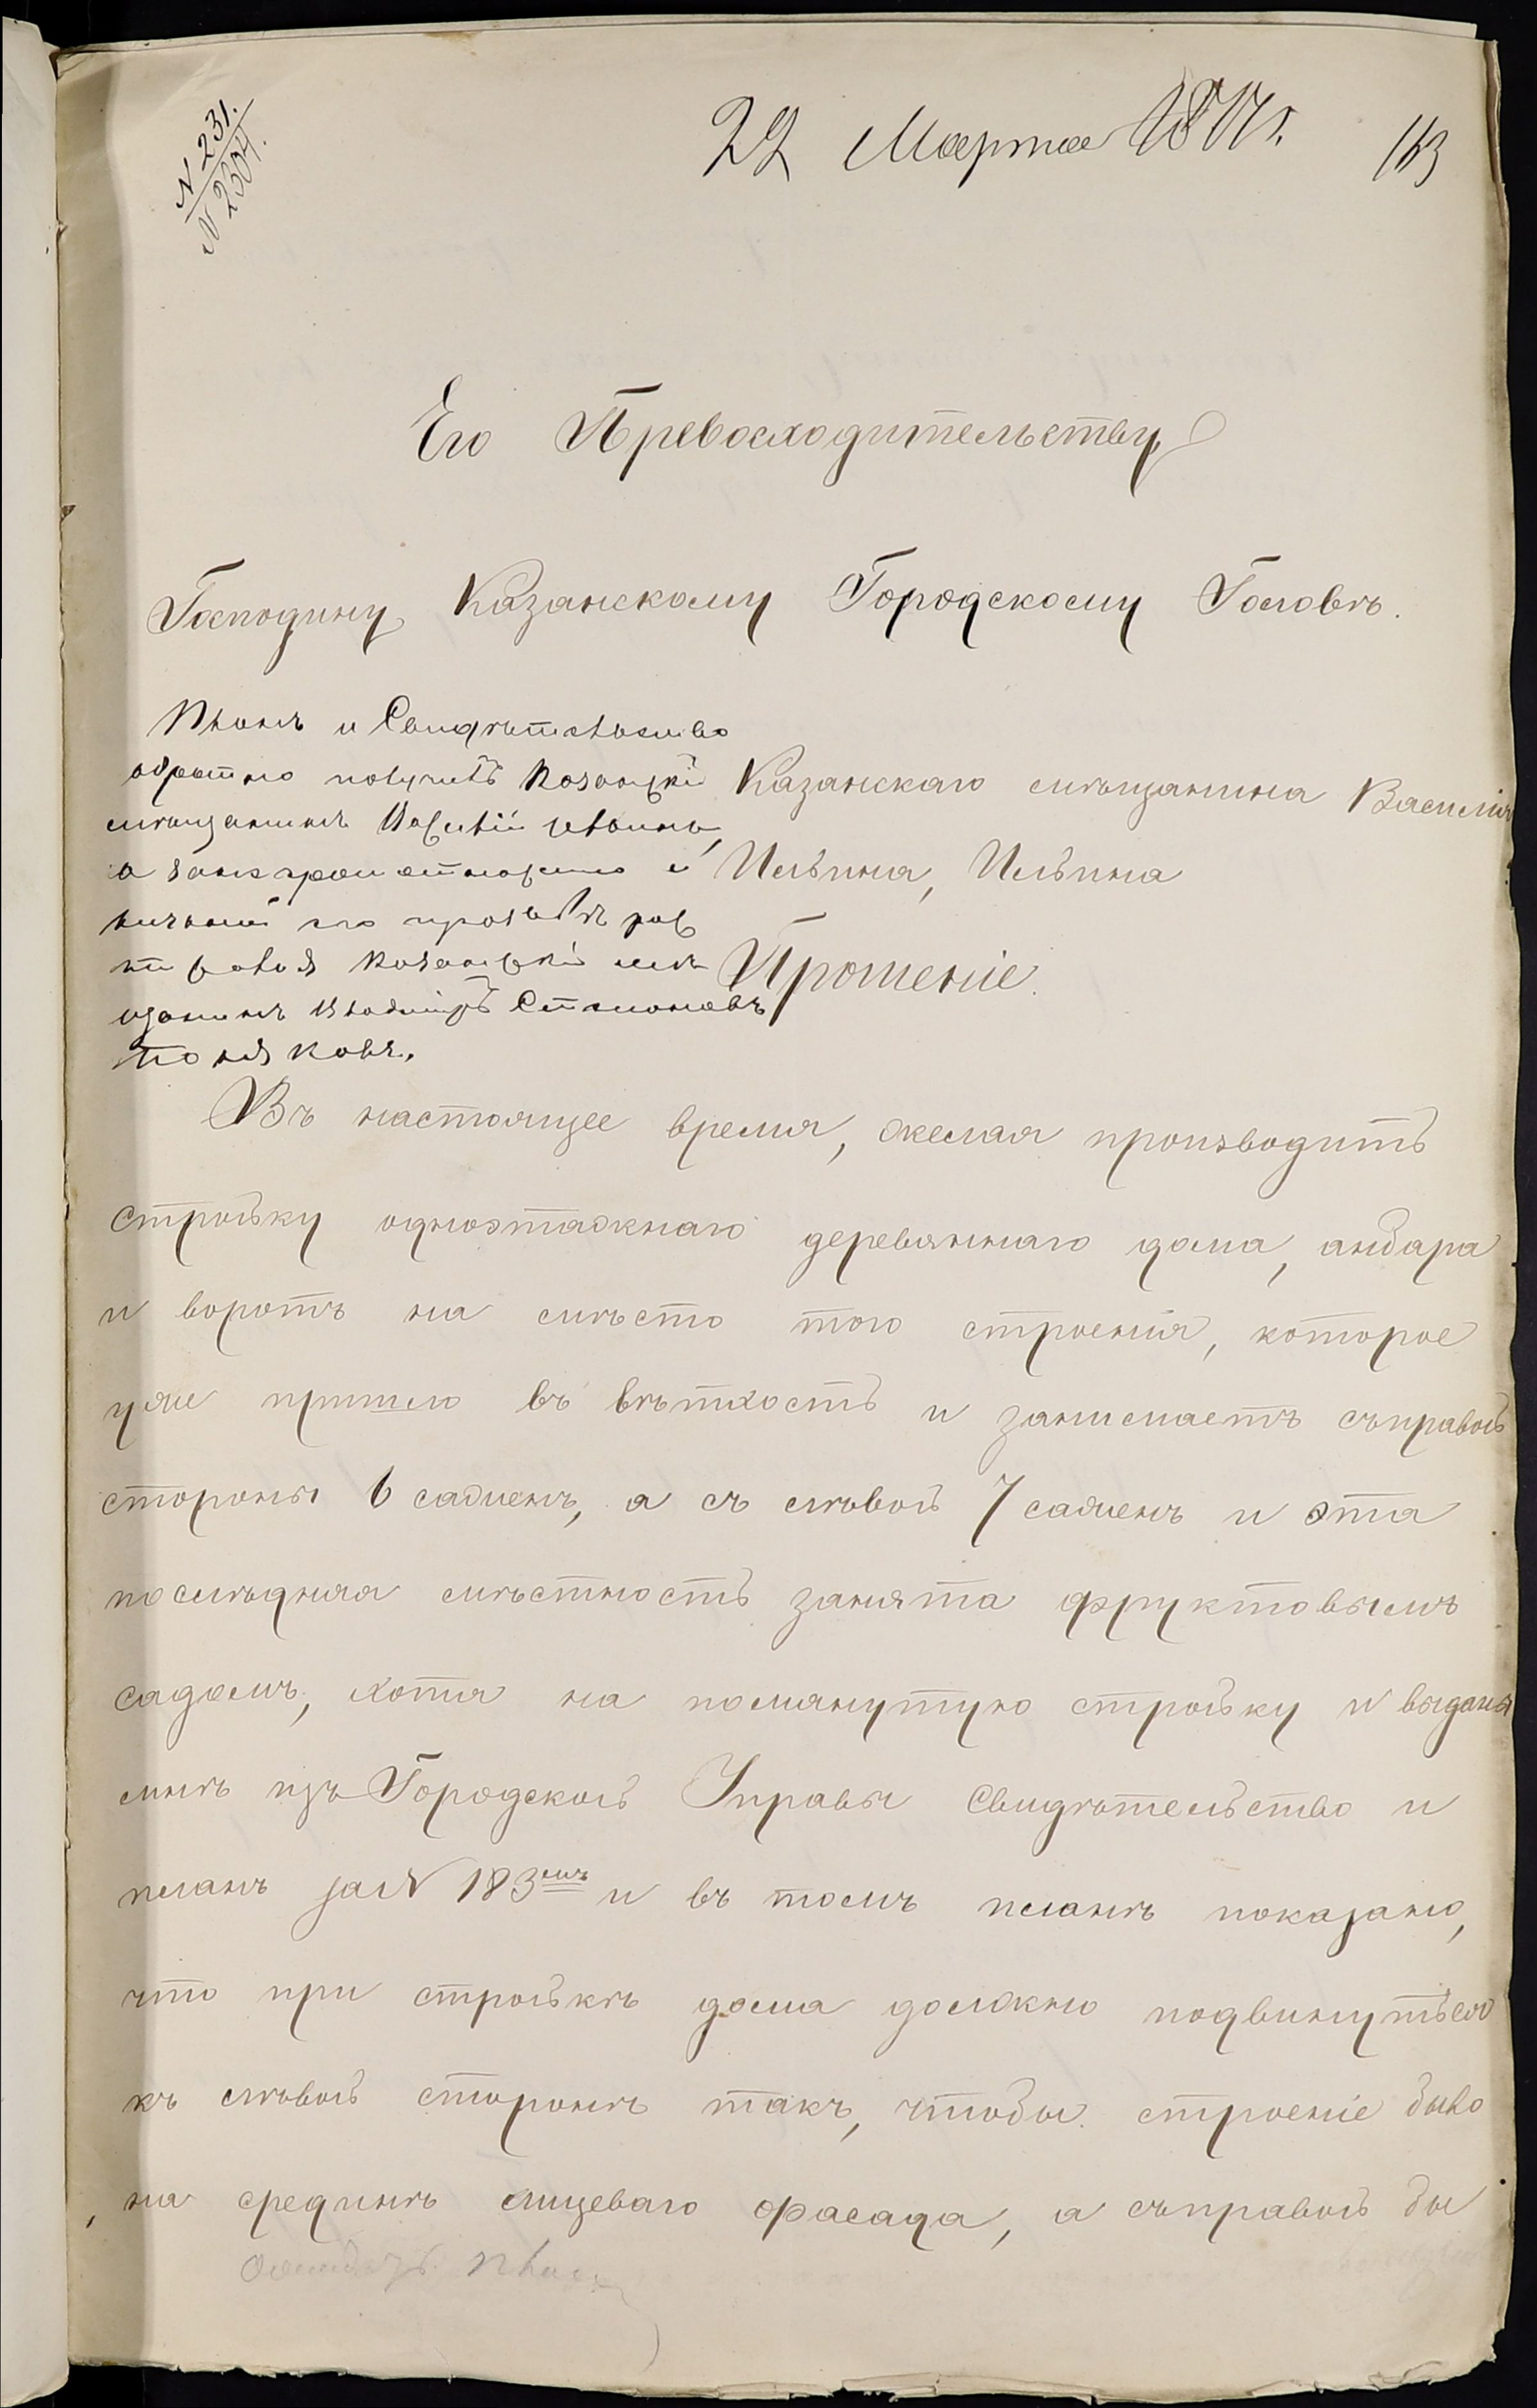 N 231.
N 2304.
22 Марта 1877 г.
113
Его Превосходительству
Господину Казанскому Городскому Головѣ.
Планъ и Свидѣтельство
обратно получилъ Казанскій
мѣщанинъ Василій Ильинъ,
а за неграмотностію и
личной его прозьбѣ рос
писался Казанскій мѣ
щанинъ Владиміръ Степановъ
Казанскаго мѣщанина Василія
Ильина, Ильина
Прошеніе.
Въ настоящее время, желая производить
стройку одноэтажнаго деревяннаго дома, анбара
и воротъ на мѣсто того строенія, которое
уже пришло въ вѣтхость и занимаетъ съ правой
стороны 6 сажень, а съ лѣвой 7 сажень и эта
послѣдняя мѣстность занята фруктовымъ
садомъ, хотя на помянутую стройку и выданы
мнѣ изъ Городской Управы Свидѣтельство и
планъ за N 183мъ и въ томъ планѣ показано,
что при стройкѣ дома должно подвинуться
къ лѣвой сторонѣ такъ, чтобы строеніе было
на срединѣ лицеваго фасада, а съ правой бы